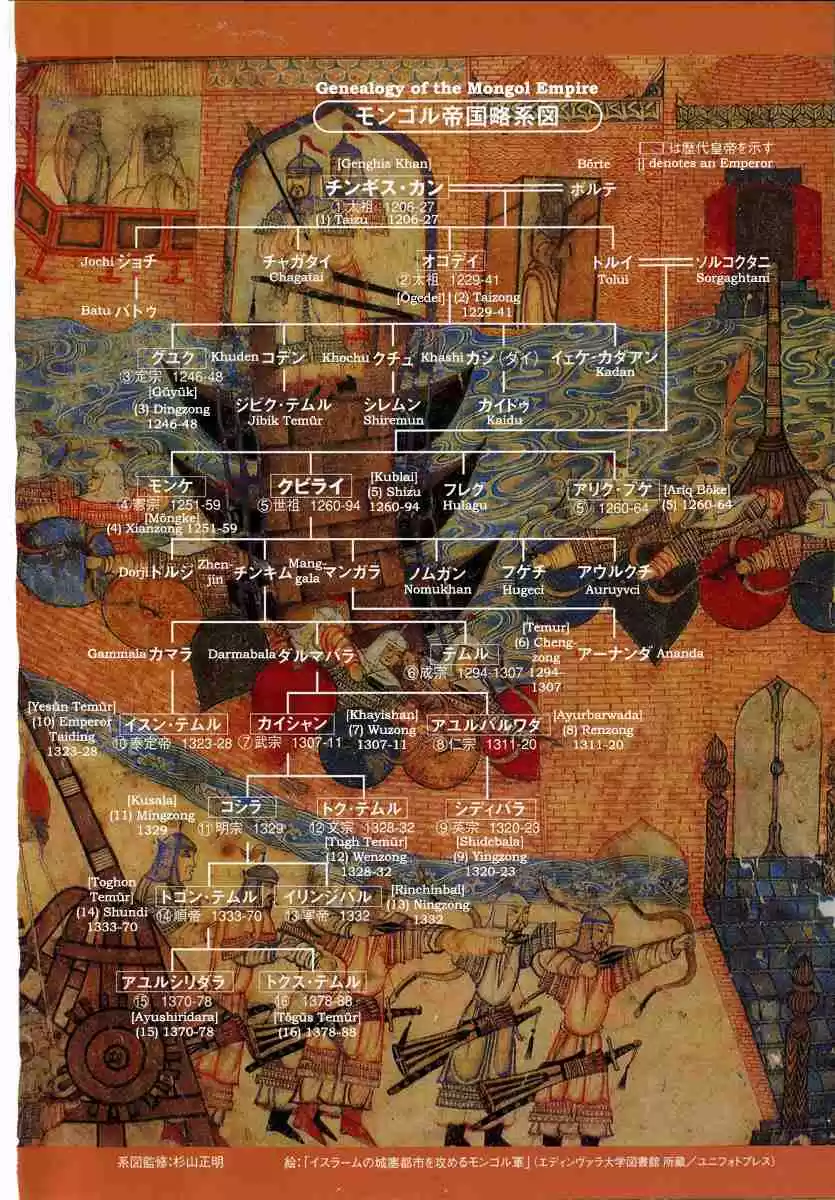 Genealogy of the Mongol Empire
モンゴル帝国略系図
[ ]は歴代皇帝を示す
[] denotes an Emperor
[Genghis Khan]
Börte
チンギス・カン
ボルテ
①太祖 1206-27
(1) Taizu 1206-27
Jochi ジョチ
チャガタイ
Chagatai
オゴデイ
②太祖 1229-41
[Ögedei] (2) Taizong
1229-41
トルイ
Tolui
ソルコクタニ
Sorgaghtani
Batu バトゥ
グユク
③定宗 1246-48
[Güyük]
(3) Dingzong
1246-48
Khuden コデン
Khochu クチュ
Khashi カシ(ダイ)
イェケ-カダアン
Kadan
ジビク・テムル
Jibik Temür
シレムン
Shiremun
カイドゥ
Kaidu
モンケ
④憲宗 1251-59
[Möngke]
(4) Xianzong 1251-59
クビライ
⑤世祖 1260-94
[Kublai]
(5) Shizu
1260-94
フレグ
Hulagu
アリク・ブケ
⑤ 1260-64
[Ariq Böke]
(5) 1260-64
Dorji ドルジ
Zhen-
jin
チンキム
Mang-
gala
マンガラ
ノムガン
Nomukhan
フゲチ
Hugeci
アウルクチ
Auruyvci
Gammala カマラ
Darmabala ダルマバラ
テムル
⑥成宗 1294-1307
[Temur]
(6) Cheng-
zong
1294-
1307
アーナンダ Ananda
[Yesün Temür]
(10) Emperor
Taiding
1323-28
イスン・テムル
⑩泰定帝 1323-28
カイシャン
⑦武宗 1307-11
[Khayishan]
(7) Wuzong
1307-11
アユルバルワダ
⑧仁宗 1311-20
[Ayurbarwada]
(8) Renzong
1311-20
[Kusala]
(11) Mingzong
1329
コシラ
⑪明宗 1329
トク・テムル
⑫文宗 1328-32
[Tugh Temür]
(12) Wenzong
1328-32
シディバラ
⑨英宗 1320-23
[Shidebala]
(9) Yingzong
1320-23
[Toghon
Temür]
(14) Shundi
1333-70
トゴン・テムル
⑭順帝 1333-70
イリンジバル
⑬寧帝 1332
[Rinchinbal]
(13) Ningzong
1332
アユルシリダラ
⑮ 1370-78
[Ayushiridara]
(15) 1370-78
トクス・テムル
⑯ 1378-88
[Tögüs Temür]
(16) 1378-88
系図監修:杉山正明
絵:「イスラームの城塞都市を攻めるモンゴル軍」(エディンヴァラ大学図書館 所蔵/ユニフォトプレス)